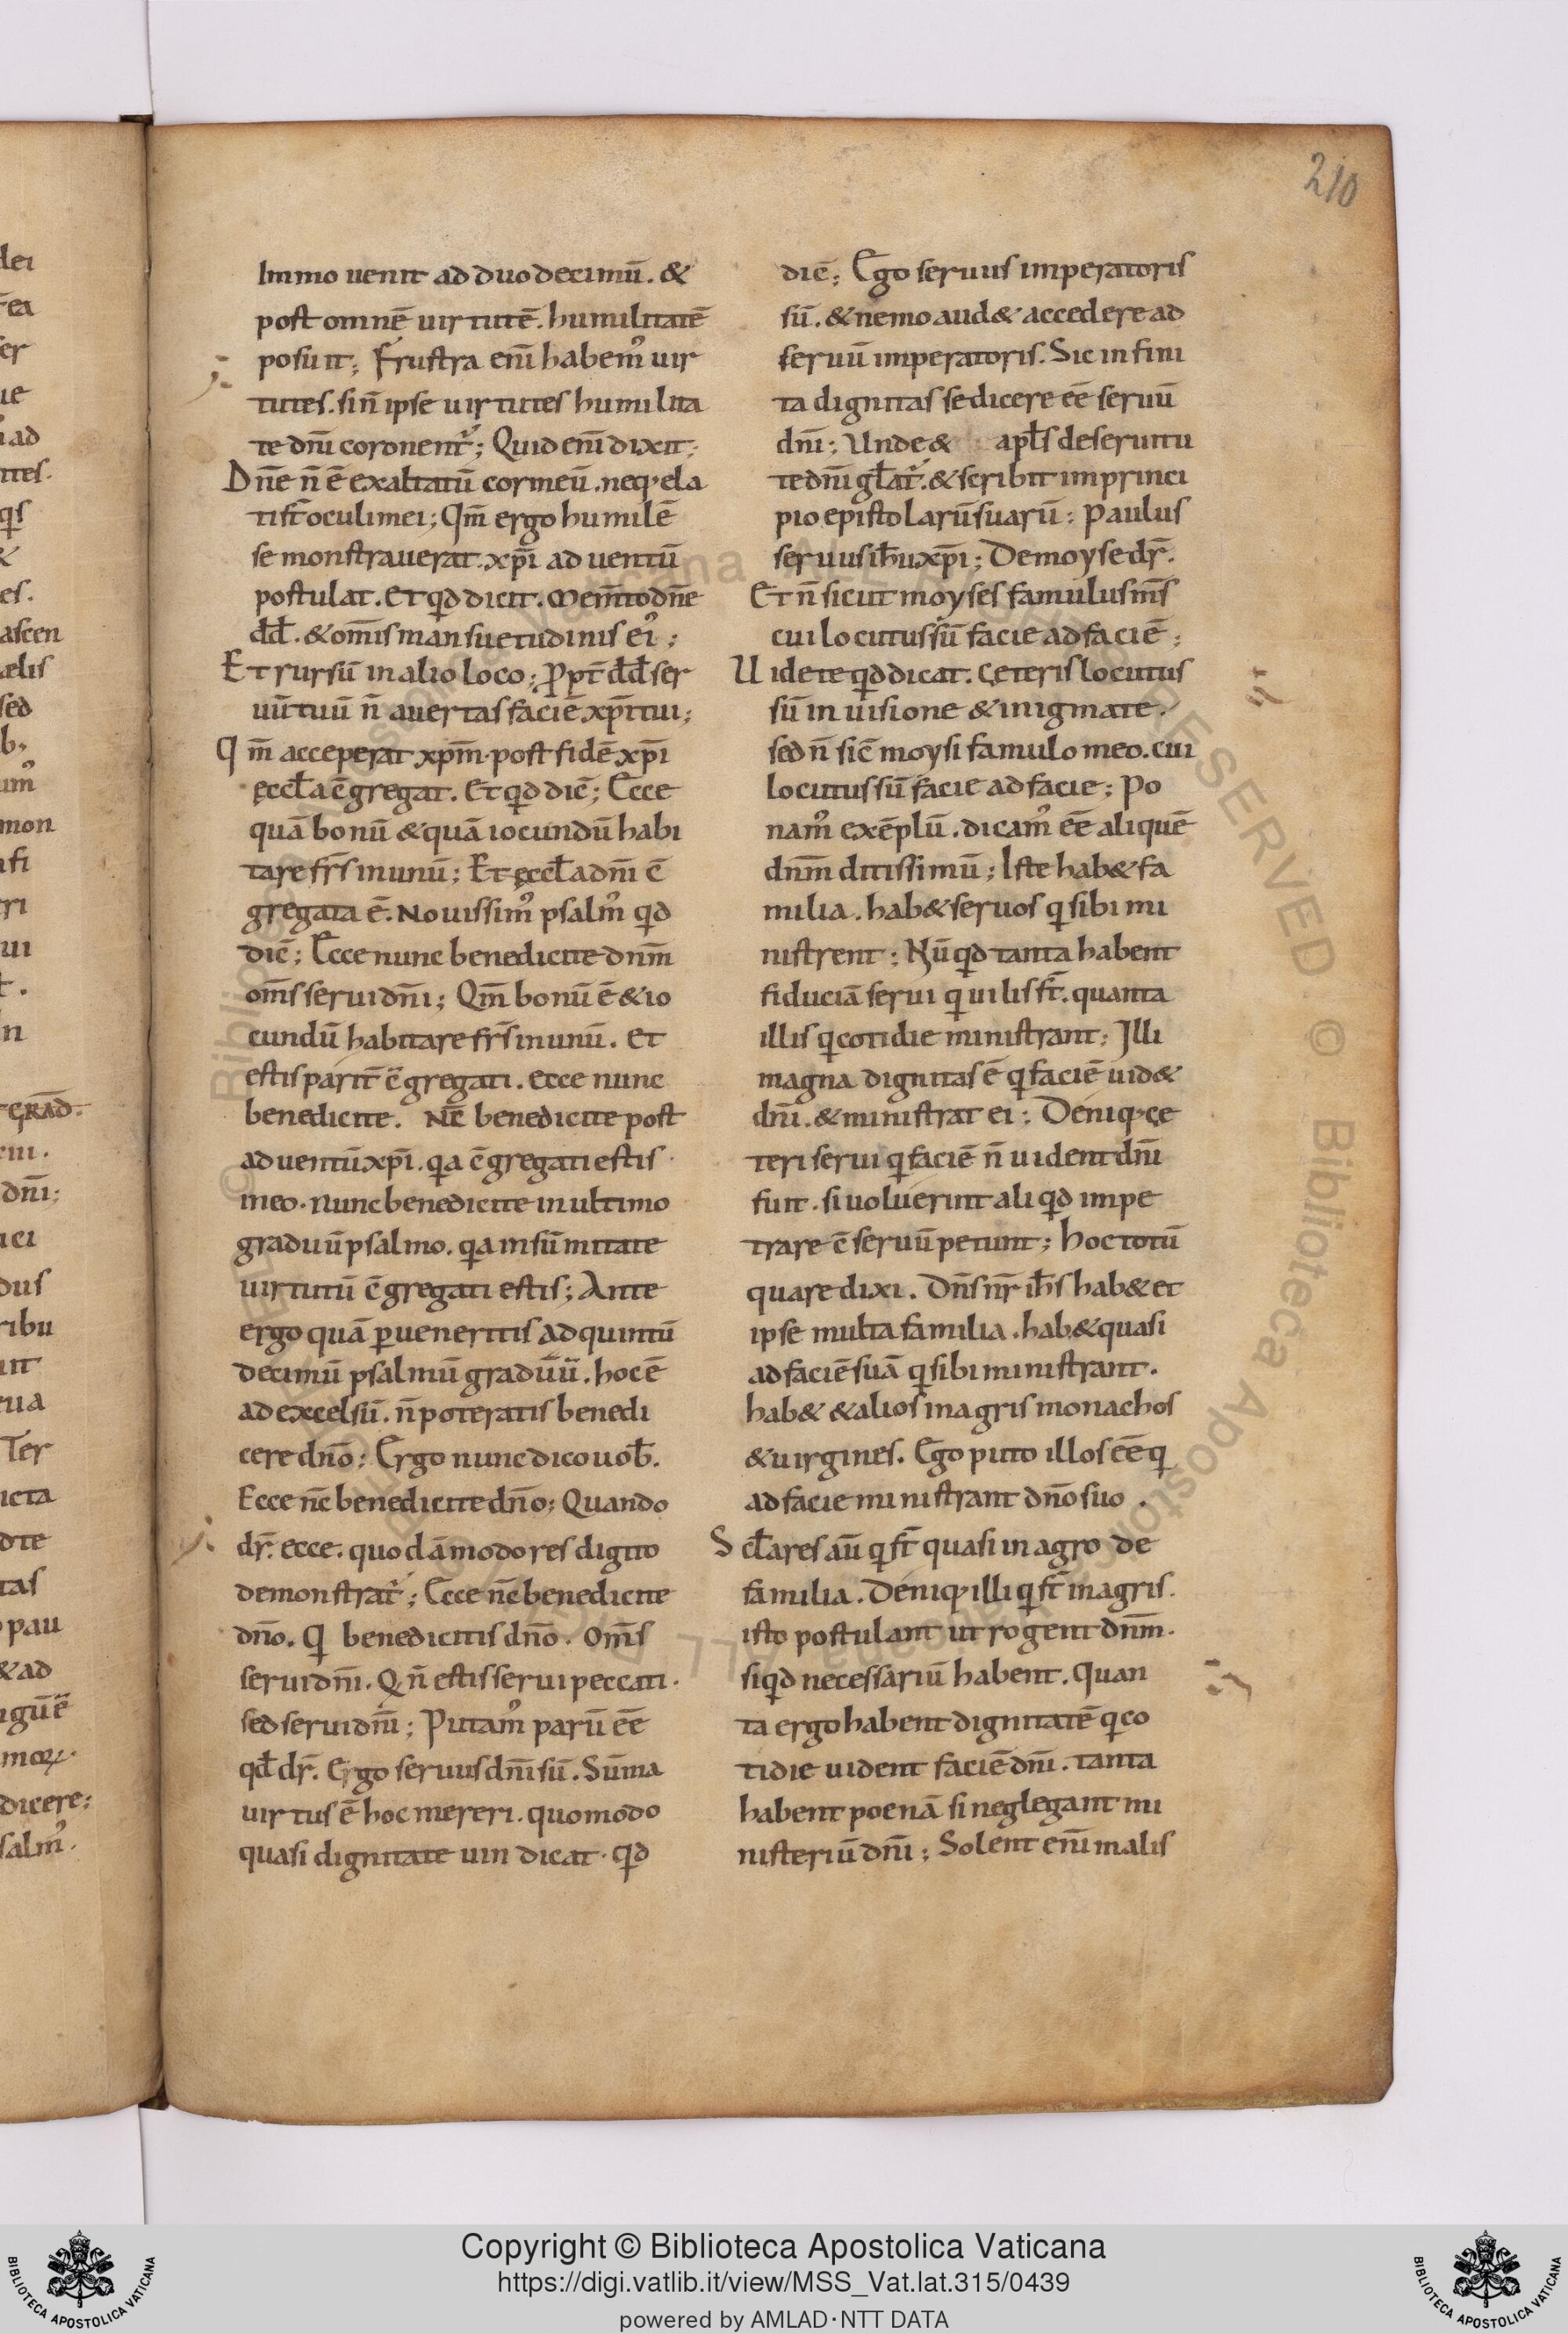 210
Immo uenit ad duodecimū. &
post omnē uirtutē. humilitatē
posuit; Frustra enī habem᾿ uir
tutes. si n̄ ipse uirtutes humilita
te dn̄i coronent᷑; Quid enī dixit;
Dn̄e n̄ ē exaltatū cor meū. neq; ela
ti st̄ oculi mei; Qm̄ ergo humilē
se monstrauerat. xp̄i aduentū
postulat. Et qd dicit. Mem̄to dn̄e
dd̄. & om̄is mansuetudinis ei᾿;
Et rursū in alio loco; Ppt̄ dd̄ ser
uū tuū n̄ auertas faciē xp̄i tui;
Qm̄ acceperat xp̄m. post fidē xp̄i
ęccl̄a c̄gregat. Et qd dic̄; Ecce
quā bonū & quā iocundū habi
tare fr̄s in unū; Et ęccl̄a dn̄i c̄
gregata ē. Nouissim᾿ psalm᾿ qd
dic̄; Ecce nunc benedicite dnm̄
om̄s serui dn̄i; Qm̄ bonū ē & io
cundū habitare fr̄s in unū. Et
estis parit̄ c̄gregati. Ecce nunc
benedicite. Nc̄ benedicite post
aduentū xp̄i. qa c̄gregati estis
meo. Nunc benedicite in ultimo
graduū psalmo. qa in sūmitate
uirtutū c̄gregati estis; Ante
ergo quā ꝑueneritis ad quintū
decimū psalmū graduū. hoc ē
ad excelsū. n̄ poteratis benedi
cere dn̄o; Ergo nunc dico uob̄.
Ecce nc̄ benedicite dn̄o; Quando
dr̄. ecce. quodāmodo res digito
demonstrat᷑; Ecce nc̄ benedicite
dn̄o. Q benedicitis dn̄o. Om̄s
serui dn̄i. Q n̄ estis serui peccati.
sed serui dn̄i; Putam᾿ parū ēē
qd̄ dr̄. Ergo seruus dn̄i sū. Sūma
uirtus ē hoc mereri. quomodo
quasi dignitate uindicat. qd
dic̄; Ego seruus imperatoris
sū. & nemo aud& accedere ad
seruū imperatoris. Sic infini
ta dignitas se dicere ēē seruū
dn̄i; Unde & apl̄s de seruitu
te dn̄i gl̄at᷑. & scribit in princi
pio epistolarū suarū; Paulus
seruus ih̄u xp̄i; De moyse dr̄.
Et n̄ sicut moyses famulus m̄s
cui locutus sū facie ad faciē;
Uidete qd dicat. Ceteris locutus
sū in uisione & inigmate.
sed n̄ sic̄ moysi famulo meo. cui
locutus sū facie ad facie; Po
nam᾿ exēplū. dicam᾿ ēē aliquē
dnm̄ ditissimū; Iste hab& fa
milia. hab& seruos q sibi mi
nistrent; Nūqd tanta habent
fiduciā serui q uilis st̄. quanta
illis q cotidie ministrant; Illi
magna dignitas ē q faciē uid&
dn̄i. & ministrat ei; Deniq; ce
teri serui q faciē n̄ uident dn̄i
sui. si uoluerint aliqd impe
trare c̄seruū petunt; Hoc totū
quare dixi. Dn̄s nr̄ ih̄s hab& et
ipse multa familia. hab& quasi
ad faciē suā q sibi ministrant.
hab& & alios in agris monachos
& uirgines. Ego puto illos ēē q
ad facie ministrant dn̄o suo.
Scl̄ares aū q st̄ quasi in agro de
familia. Deniq; illi q st̄ in agris.
isto postulant ut rogent dnm̄.
siqd necessariū habent. Quan
ta ergo habent dignitatē q co
tidie uident faciē dn̄i. tanta
habent poenā si neglegant mi
nisteriū dn̄i; Solent enī malis
Copyright © Biblioteca Apostolica Vaticana
https://digi.vatlib.it/view/MSS_Vat.lat.315/0439
powered by AMLAD·NTT DATA